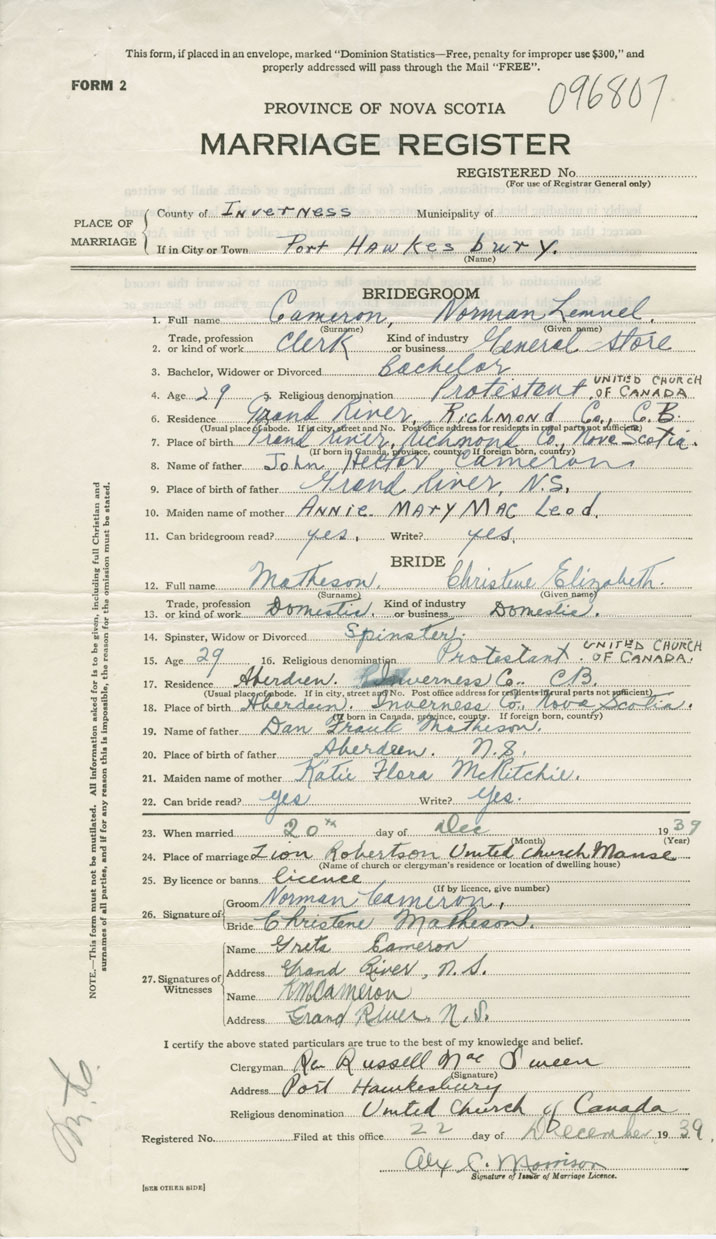 This form, if placed in an envelope, marked "Dominion Statistics—Free, penalty for improper use $300," and
properly addressed will pass through the Mail "FREE".
FORM 2
096807
PROVINCE OF NOVA SCOTIA
MARRIAGE REGISTER
REGISTERED No.
(For use of Registrar General only)
PLACE OF MARRIAGE
County of Inverness Municipality of
If in City or Town Port Hawkesbury.
(Name)
BRIDEGROOM
1. Full name Cameron, Norman Lemuel.
(Surname) (Given name)
2. Trade, profession or kind of work Clerk Kind of industry or business General Store
3. Bachelor, Widower or Divorced Bachelor
4. Age 29 5. Religious denomination Protestant UNITED CHURCH OF CANADA.
6. Residence Grand River, Richmond Co., C.B.
(Usual place of abode. If in city, street and No. Post office address for residents in rural parts not sufficient)
7. Place of birth Grand River, Richmond Co., Nova Scotia.
(If born in Canada, province, county. If foreign born, country)
8. Name of father John Hector Cameron
9. Place of birth of father Grand River, N.S.
10. Maiden name of mother Annie Mary MacLeod.
11. Can bridegroom read? yes, Write? yes.
BRIDE
12. Full name Matheson. Christene Elizabeth.
(Surname) (Given name)
13. Trade, profession or kind of work Domestic. Kind of industry or business Domestic.
14. Spinster, Widow or Divorced Spinster.
15. Age 29 16. Religious denomination Protestant UNITED CHURCH OF CANADA.
17. Residence Aberdeen. Inverness Co. C.B.
(Usual place of abode. If in city, street and No. Post office address for residents in rural parts not sufficient)
18. Place of birth Aberdeen. Inverness Co., Nova Scotia.
(If born in Canada, province, county. If foreign born, country)
19. Name of father Dan Frank Matheson.
20. Place of birth of father Aberdeen. N.S.
21. Maiden name of mother Katie Flora McRitchie.
22. Can bride read? yes Write? yes.
23. When married 20th day of Dec 1939
(Month) (Year)
24. Place of marriage Zion Robertson United Church Manse
(Name of church or clergyman's residence or location of dwelling house)
25. By licence or banns licence
(If by licence, give number)
26. Signature of
Groom Norman Cameron,
Bride Christene Matheson.
27. Signatures of Witnesses
Name Greta Cameron
Address Grand River, N.S.
Name Cameron
Address Grand River. N.S.
I certify the above stated particulars are true to the best of my knowledge and belief.
Clergyman Rev Russell Mac Sween
(Signature)
Address Port Hawkesbury
Religious denomination United Church of Canada
Registered No. Filed at this office 22 day of December 1939.
Alex C. Morrison
Signature of Issuer of Marriage Licence.
[SEE OTHER SIDE]
NOTE.—This form must not be mutilated. All information asked for is to be given, including full Christian and
surnames of all parties, and if for any reason this is impossible, the reason for the omission must be stated.